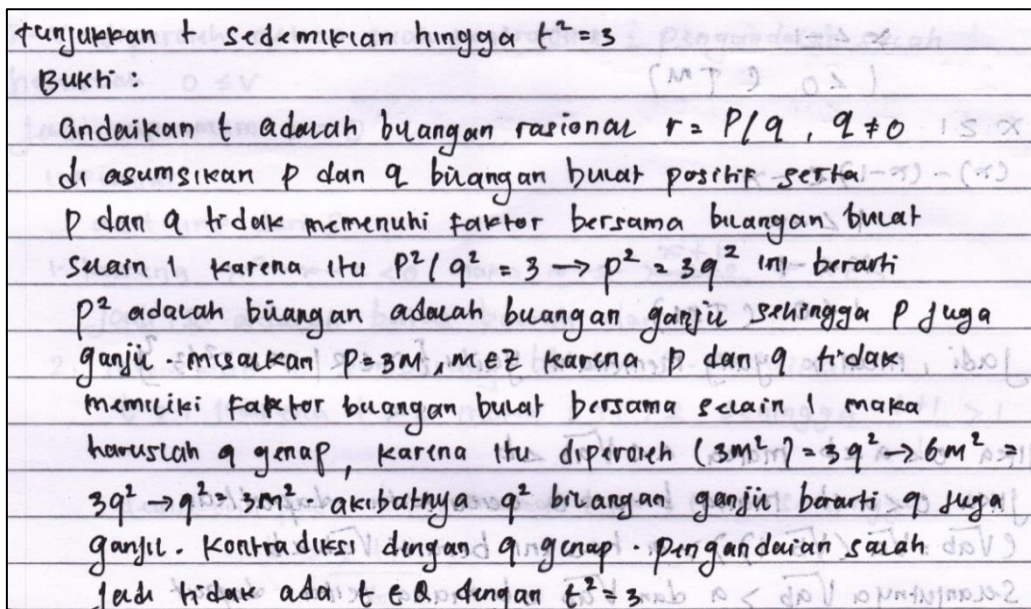 tunjukkan t sedemikian hingga t² = 3
Bukti :
andaikan t adalah bilangan rasional r = P/q , q ≠ 0
di asumsikan P dan q bilangan bulat positif serta
P dan q tidak memenuhi faktor bersama bilangan bulat
selain 1 karena itu P²/q² = 3 → p² = 3q² ini berarti
P² adalah bilangan adalah bilangan ganjil sehingga P juga
ganjil . misalkan P = 3M, M ∈ Z karena P dan q tidak
memiliki faktor bilangan bulat bersama selain 1 maka
haruslah q genap, karena itu diperoleh (3m²) = 3q² → 6m² =
3q² → q² = 3m² akibatnya q² bilangan ganjil berarti q juga
ganjil . kontradiksi dengan q genap . pengandaian salah
Jadi tidak ada t ∈ Q dengan t² = 3